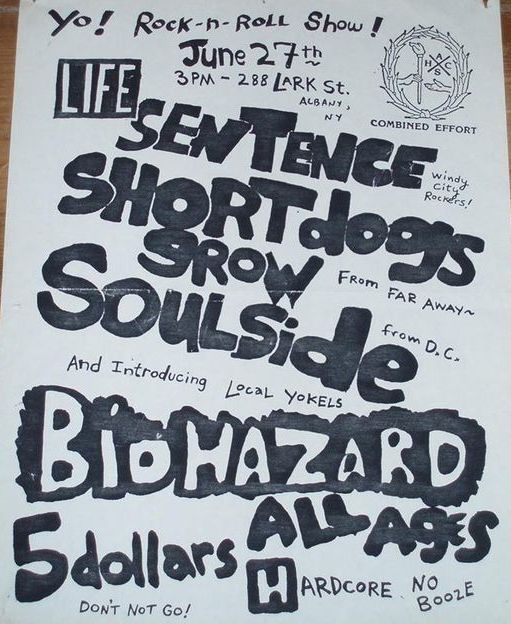 Yo! Rock-n-Roll Show!
June 27th
3PM - 288 LARK St.
ALBANY,
NY
H A C S
COMBINED EFFORT
LIFE
SENTENCE
Windy
City
Rockers!
SHORT dogs
grow
From FAR AWAY~
SOULSide
from D.C.
And Introducing Local Yokels
BIOHAZARD
5 dollars
ALL AgES
HARDCORE NO
BOOZE
DON'T NOT GO!